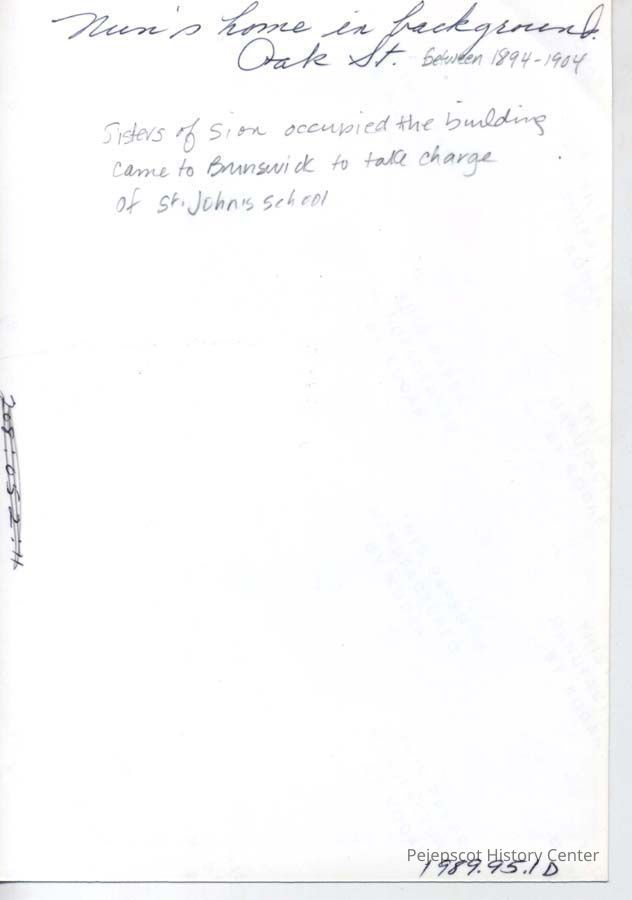 Nun's home in background.
Oak St. between 1894-1904
Sisters of Sion occupied the building
came to Brunswick to take charge
of St. John's school
Pejepscot History Center
1989.95.1D